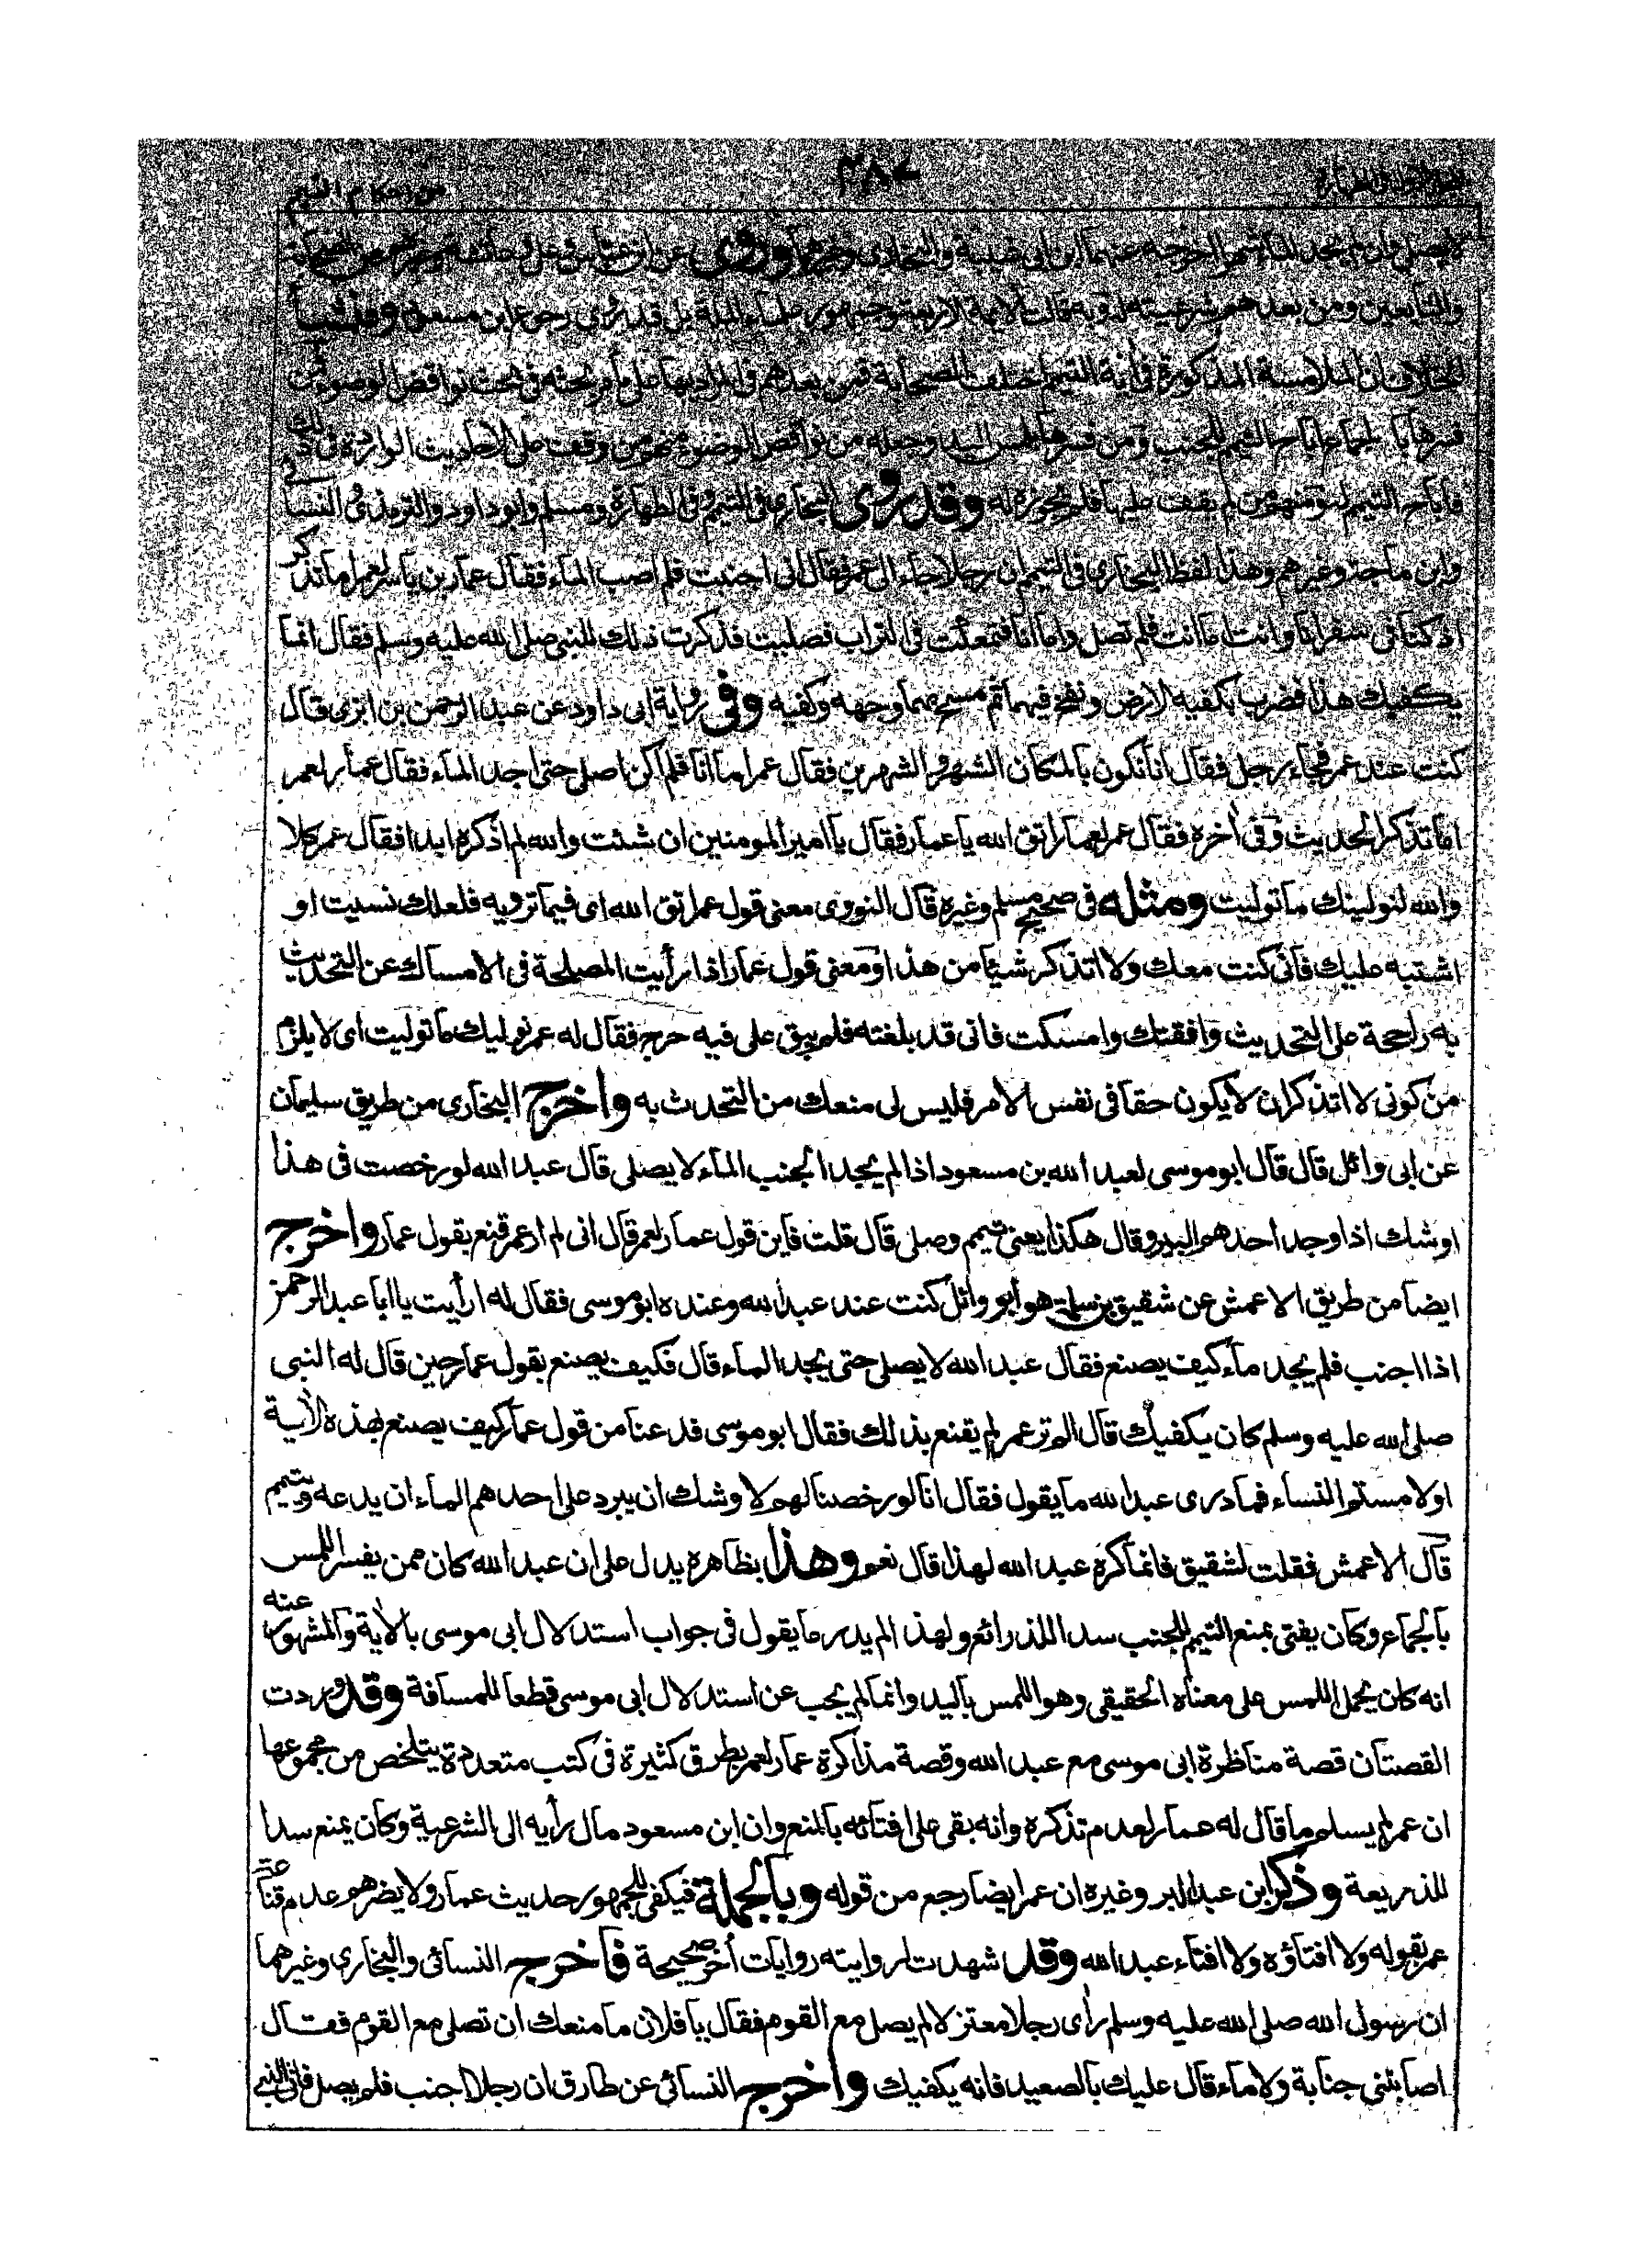 من احكام التيمم
لا يصلي وان لم يجد الماء شهرا اخرجه عنهما ابن ابي شيبة والبخاري وغيرهما وروى عن ابن عباس وعلي وطائفة
والتابعين ومن بعدهم شرعيته له وبه قالت الائمة الاربعة وجمهور علماء الملة بل قد روى رجوع ابن مسعود ومنشأ
الخلاف ان الملامسة المذكورة في اية التيمم اختلفت الصحابة فمن بعدهم في المراد بها على ما مر بحثه في بحث نواقض الوضوء فمن
فسرها بالجماع اباح التيمم للجنب ومن فسرها بلمس اليد وجعله من نواقض الوضوء فمنهم من وقفت على الاحاديث الواردة في ذلك
فاباح التيمم له ومنهم من لم يقف عليها فلم يجوزه له وقد روى البخاري في التيمم وفي الطهارة ومسلم وابو داود والترمذي والنسائي
وابن ماجة وغيرهم وهذا لفظ البخاري في التيمم ان رجلا جاء الى عمر فقال اني اجنبت فلم اصب الماء فقال عمار بن ياسر لعمر اما تذكر
اذ كنا في سفر انا وانت اما انت فلم تصل واما انا فتمعكت في التراب فصليت فذكرت ذلك للنبي صلى الله عليه وسلم فقال انما
يكفيك هذا فضرب بكفيه الارض ونفخ فيهما ثم مسح بهما وجهه وكفيه وفي رواية ابى داود عن عبد الرحمن بن ابزى قال
كنت عند عمر فجاء رجل فقال انا نكون بالمكان الشهر والشهرين فقال عمر اما انا فلم اكن اصلي حتى اجد الماء فقال عمار لعمر
اما تذكر الحديث وفي اخره فقال عمر لعمار اتق الله يا عمار فقال يا امير المومنين ان شئت والله لم اذكره ابدا فقال عمر كلا
والله لنولينك ما توليت ومثله في صحيح مسلم وغيره قال النووى معنى قول عمر اتق الله اى فيما ترويه فلعلك نسيت او
اشتبه عليك فانى كنت معك ولا اتذكر شيئا من هذا ومعنى قول عمار اذا رأيت المصلحة فى الامساك عن التحديث
به راجحة على التحديث وافقتك وامسكت فانى قد بلغته فلم يبق على فيه حرج فقال له عمر نوليك ما توليت اى لا يلزم
من كونى لا اتذكر ان لا يكون حقا فى نفس الامر فليس لى منعك من التحدث به واخرج البخارى من طريق سليمان
عن ابى وائل قال قال ابو موسى لعبد الله بن مسعود اذا لم يجد الجنب الماء لا يصلى قال عبد الله لو رخصت فى هذا
اوشك اذا وجد احدهم البرد قال هكذا يعنى تيمم وصلى قال قلت فاين قول عمار لعمر قال انى لم ار عمر قنع بقول عمار واخرج
ايضا من طريق الاعمش عن شقيق بن سلمة هو ابو وائل كنت عند عبد الله وعنده ابو موسى فقال له ارأيت يا ابا عبد الرحمن
اذا اجنب فلم يجد ماء كيف يصنع فقال عبد الله لا يصلى حتى يجد الماء قال فكيف يصنع بقول عمار حين قال له النبى
صلى الله عليه وسلم كان يكفيك قال الم تر عمر لم يقنع بذلك فقال ابو موسى فدعنا من قول عمار كيف يصنع بهذه الأية
او لامستم النساء فما درى عبد الله ما يقول فقال انا لو رخصنا لهم لاوشك ان يبرد على احدهم الماء ان يدعه ويتيمم
قال الاعمش فقلت لشقيق فانما كره عبد الله لهذا قال نعم وهذا بظاهره يدل على ان عبد الله كان ممن يفسر اللمس
بالجماع وكان يفتى بمنع التيمم للجنب سدا للذرائع ولهذا لم يدر ما يقول فى جواب استدلال ابى موسى بالأية والمشهور عنه
انه كان يحمل اللمس على معناه الحقيقى وهو اللمس باليد وانما لم يجب عن استدلال ابى موسى قطعا للمسافة وقد وردت
القصتان قصة مناظرة ابى موسى مع عبد الله وقصة مذاكرة عمار لعمر بطرق كثيرة فى كتب متعددة يتلخص من مجموعها
ان عمر لم يسلم ما قال له عمار لعدم تذكره وانه بقى على افتائه بالمنع وان ابن مسعود مال رأيه الى الشرعية وكان يمنع سدا
للذريعة وذكر ابن عبد البر وغيره ان عمر ايضا رجع من قوله وبالجملة فيكفى للجمهور حديث عمار ولا يضرهم عدم قناعة
عمر بقوله ولا افتاؤه ولا افتاء عبد الله وقد شهدت لروايته روايات أخر صحيحة فاخرج النسائى والبخارى وغيرهما
ان رسول الله صلى الله عليه وسلم رأى رجلا معتزلا لم يصل مع القوم فقال يا فلان ما منعك ان تصلى مع القوم فقال
اصابتنى جنابة ولا ماء قال عليك بالصعيد فانه يكفيك واخرج النسائى عن طارق ان رجلا اجنب فلم يصل فاتى النبى